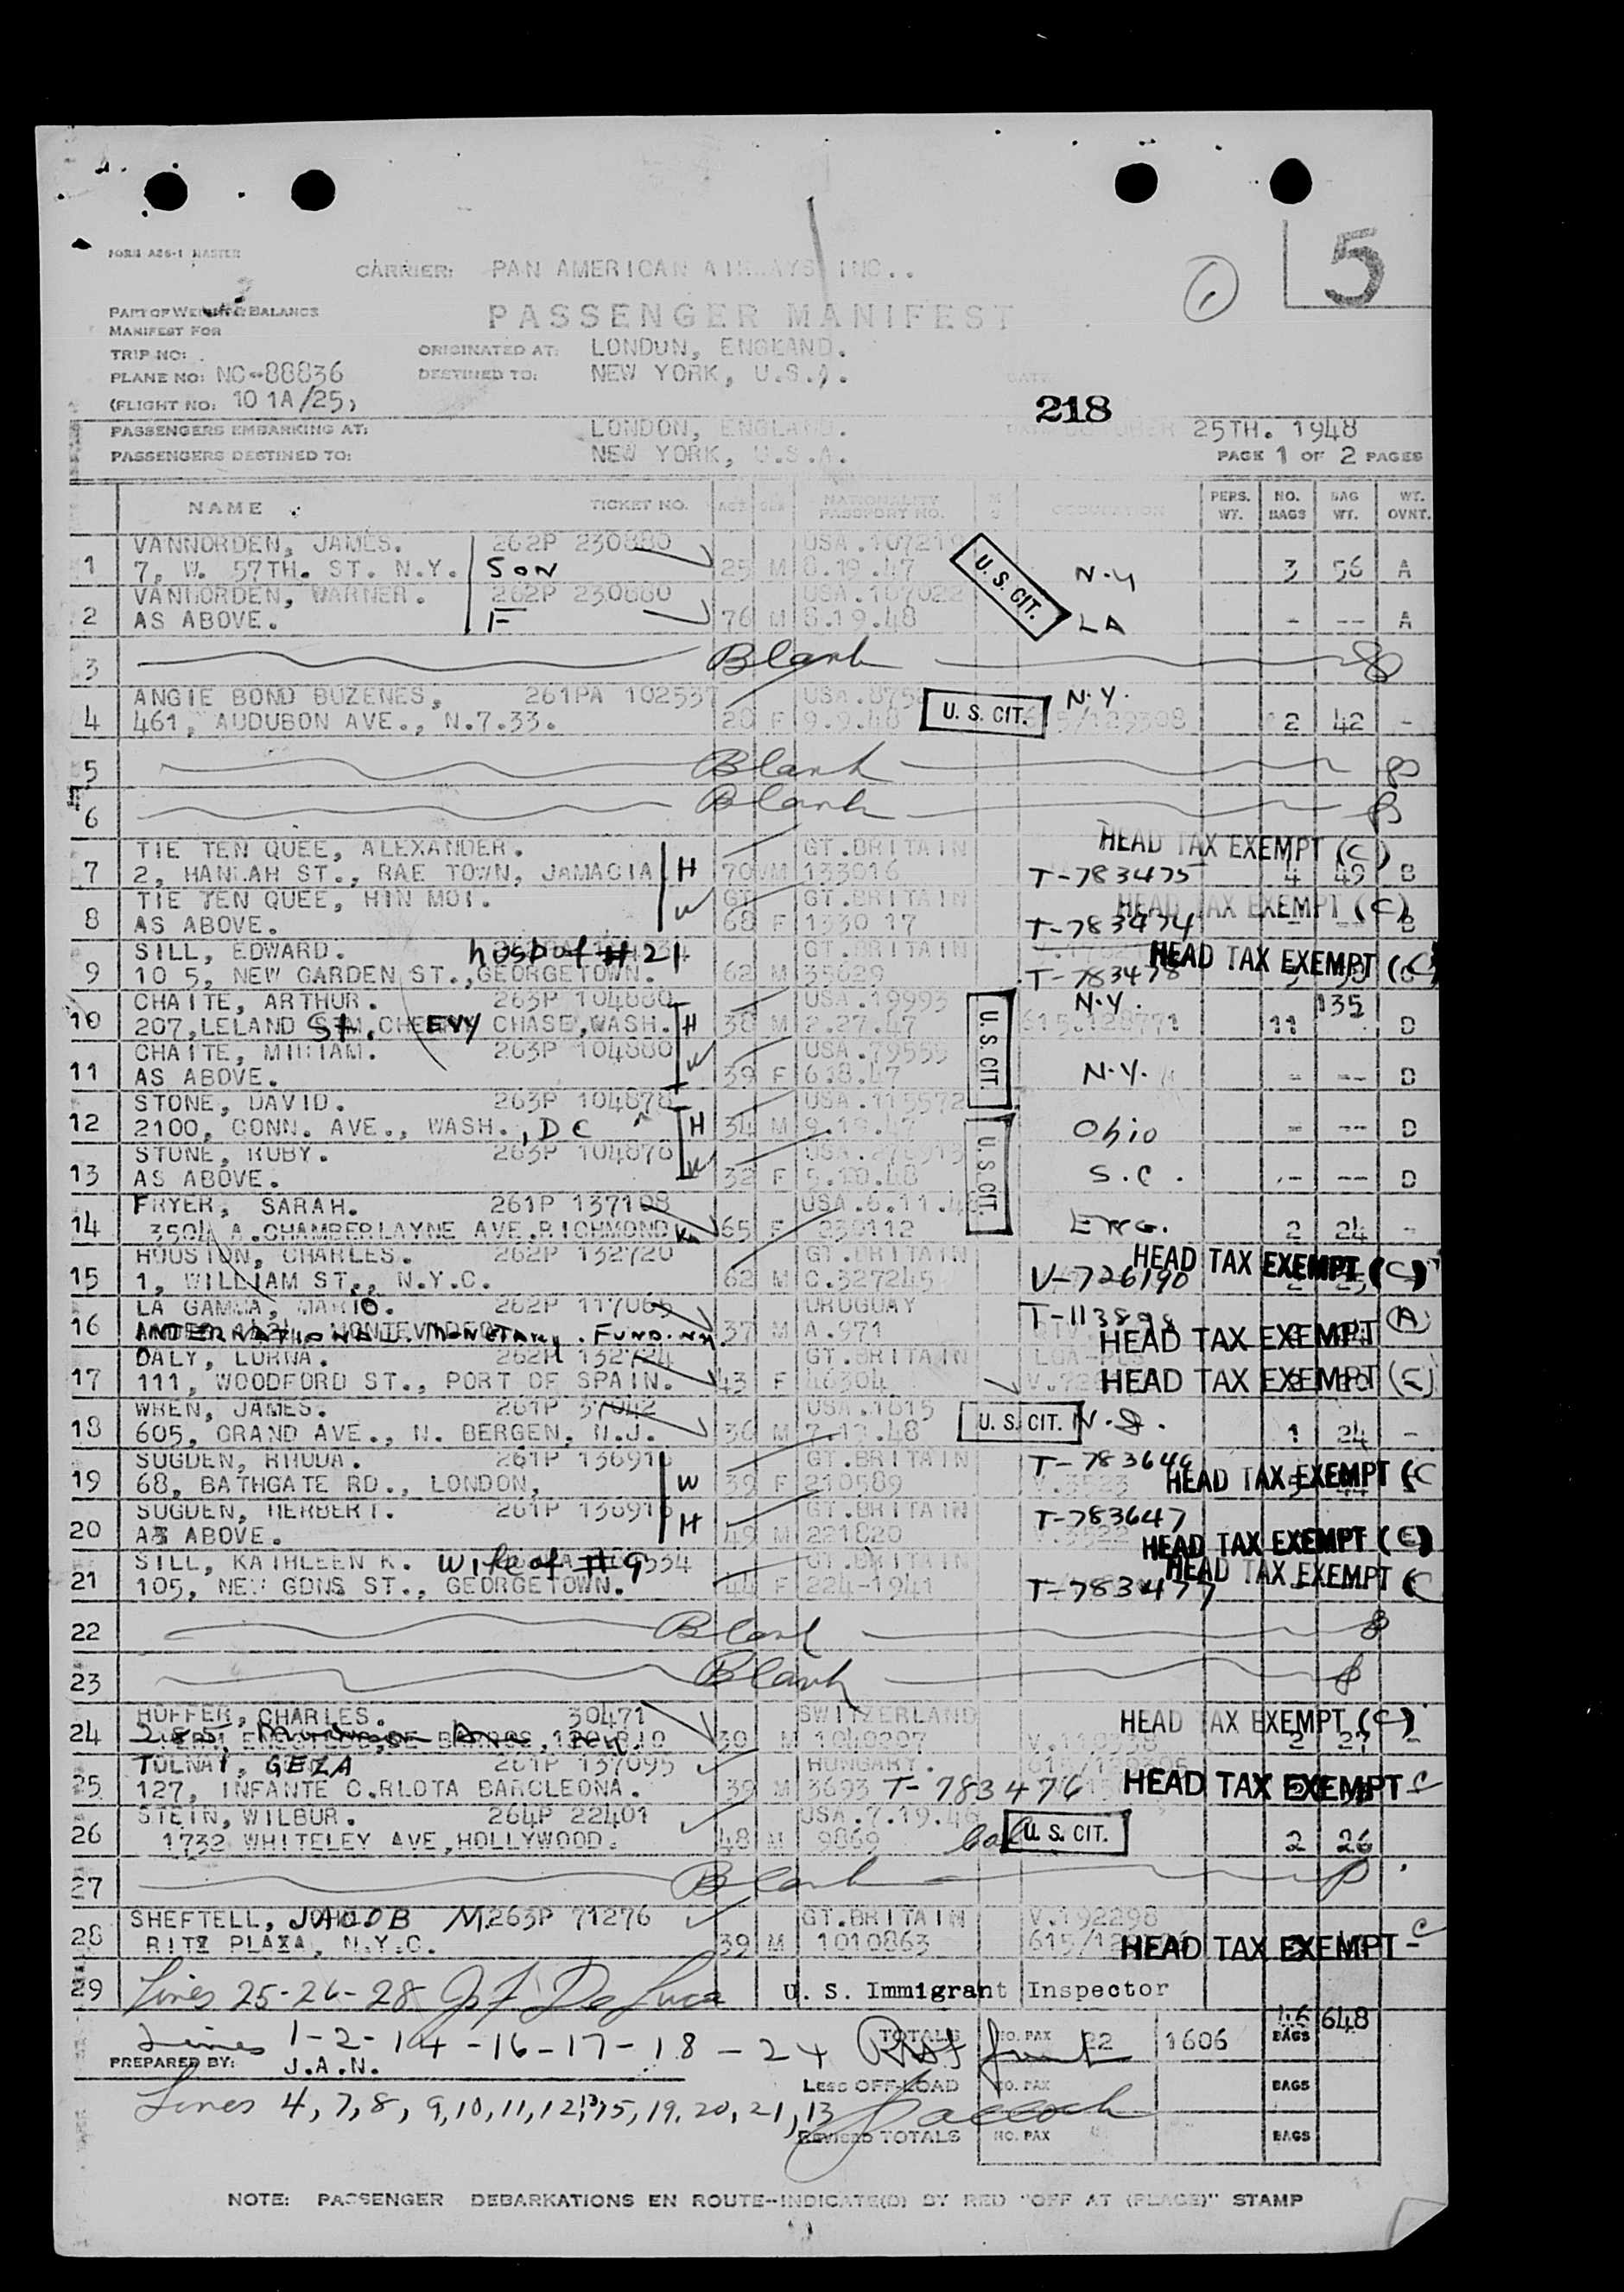 5
FORM A26-1 MASTER
CARRIER: PAN AMERICAN AIRWAYS INC..
PART OF WEIGHT & BALANCE
MANIFEST FOR
PASSENGER MANIFEST
TRIP NO:
ORIGINATED AT: LONDON, ENGLAND.
PLANE NO: NC-88836
DESTINED TO: NEW YORK, U.S.A.
(FLIGHT NO: 10 1A/25)
218
PASSENGERS EMBARKING AT: LONDON, ENGLAND. DATE OCTOBER 25TH. 1948
PASSENGERS DESTINED TO: NEW YORK, U.S.A. PAGE 1 OF 2 PAGES
NAME TICKET NO. AGE SEX NATIONALITY PASSPORT NO. OCCUPATION PERS. WT. NO. BAGS BAG WT. WT. OVNT.
VANNORDEN, JAMES. 262P 230880 USA.107219
1 7, W. 57TH. ST. N.Y. SON 25 M 8.19.47 U. S. CIT. N.Y 3 56 A
VANNORDEN, WARNER. 262P 230880 USA.107022
2 AS ABOVE. F 76 M 8.19.48 LA - -- A
3 Blank
ANGIE BOND BUZENES, 261PA 102537 N.Y.
4 461, AUDUBON AVE., N.7.33. 20 F 9.9.48 U. S. CIT. 2 42 -
5 Blank
6 Blank
TIE TEN QUEE, ALEXANDER. GT.BRITAIN HEAD TAX EXEMPT (C)
7 2, HANNAH ST., RAE TOWN, JAMACIA H 70 M 133016 T-783475 4 49 B
TIE TEN QUEE, HIN MOI. GT.BRITAIN HEAD TAX EXEMPT (C)
8 AS ABOVE. W 68 F 1330 17 T-783474 - -- B
SILL, EDWARD. husb of #21 GT.BRITAIN HEAD TAX EXEMPT (C)
9 10 5, NEW GARDEN ST.,GEORGETOWN. 62 M 35629 T-783478
CHAITE, ARTHUR. 263P 104880 USA.19993 N.Y. 135
10 207,LELAND ST. CHEVY CHASE,WASH. H 38 M 2.27.47 U. S. CIT. 615.128771 11 D
CHAITE, MIRIAM. 263P 104880 USA.79555
11 AS ABOVE. W 39 F 6.8.47 N.Y. - -- D
STONE, DAVID. 263P 104878 USA.115572
12 2100, CONN. AVE., WASH., DC H 34 M 9.19.47 U. S. CIT. Ohio - -- D
STONE, RUBY. 263P 104878
13 AS ABOVE. W 32 F 5.10.48 S.C. - -- D
FRYER, SARAH. 261P 137108 USA.6.11.48
14 3504 A.CHAMBERLAYNE AVE.RICHMOND 65 F 230112 ENG. 2 24 -
HOUSTON, CHARLES. 262P 132720 GT.BRITAIN HEAD TAX EXEMPT (C)
15 1, WILLIAM ST., N.Y.C. 62 M C.327245 V-726190
LA GAMMA, MARIO. 262P 117065 URUGUAY T-113898 (A)
16 INTERNATIONAL MONETARY FUND. 37 M A.971 HEAD TAX EXEMPT
DALY, LORNA. 262P 132724 GT.BRITAIN
17 111, WOODFORD ST., PORT OF SPAIN. 43 F 46304 HEAD TAX EXEMPT
WREN, JAMES. 261P 37042 USA.1615
18 605, GRAND AVE., N. BERGEN, N.J. 36 M 7.19.48 U. S. CIT. N.J. 1 24 -
SUGDEN, RHODA. 261P 136916 GT.BRITAIN T-783646
19 68, BATHGATE RD., LONDON, W 39 F 210589 V.3523 HEAD TAX EXEMPT (C
SUGDEN, HERBERT. 261P 136916 GT.BRITAIN T-783647
20 AS ABOVE. H 49 M 221820 V.3522 HEAD TAX EXEMPT (C)
SILL, KATHLEEN K. wife of #9 GT.BRITAIN HEAD TAX EXEMPT (C
21 105, NEW GDNS ST., GEORGETOWN. 44 F 224-1941 T-783477
22 Blank
23 Blank
HOFFER, CHARLES. 30471 SWITZERLAND HEAD TAX EXEMPT (C)
24 285 39 M 1040207 2 27 -
TOLNAI, GEZA 261P 137095 HUNGARY.
25 127, INFANTE C.RLOTA BARCLEONA. 39 M 3693 T-783476 HEAD TAX EXEMPT C
STEIN, WILBUR. 264P 22401 USA.7.19.46
26 1732 WHITELEY AVE,HOLLYWOOD. 48 M 9869 Cal U. S. CIT. 2 26
27 Blank
SHEFTELL, JACOB M. 263P 71276 GT.BRITAIN V.192298
28 RITZ PLAZA, N.Y.C. 39 M 1010863 HEAD TAX EXEMPT - C
29 Lines 25-26-28 J F DeLuca U. S. Immigrant Inspector
46 648
Lines 1-2-14-16-17-18-24 TOTALS NO. PAX 22 1606 BAGS
PREPARED BY: J.A.N.
Less OFF-LOAD NO. PAX BAGS
Lines 4,7,8,9,10,11,12,13,15,19,20,21,13
Revised TOTALS NO. PAX BAGS
NOTE: PASSENGER DEBARKATIONS EN ROUTE--INDICATE(D) BY RED "OFF AT (PLACE)" STAMP